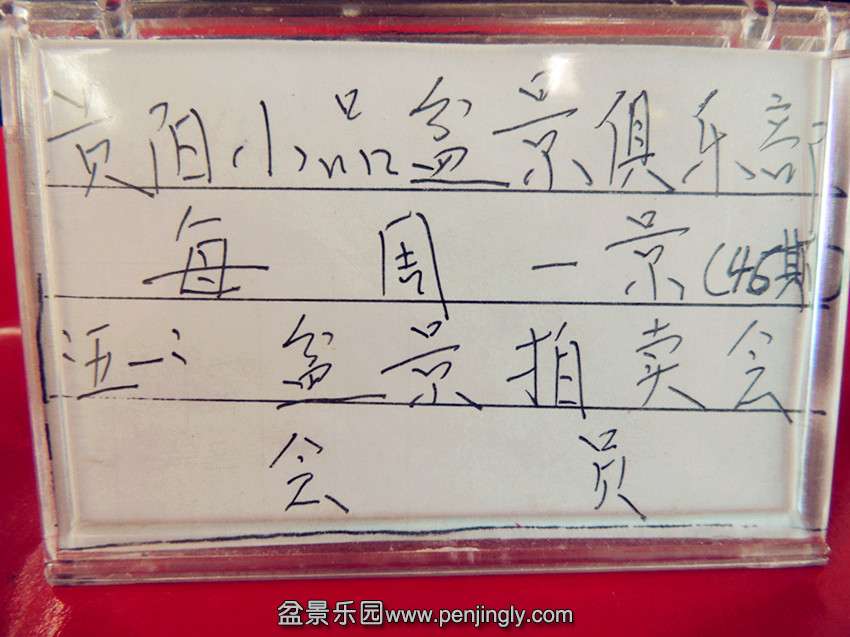 贵阳小品盆景俱乐部
每周一景(46期)
五一 盆景拍卖会
会员
盆景乐园www.penjingly.com